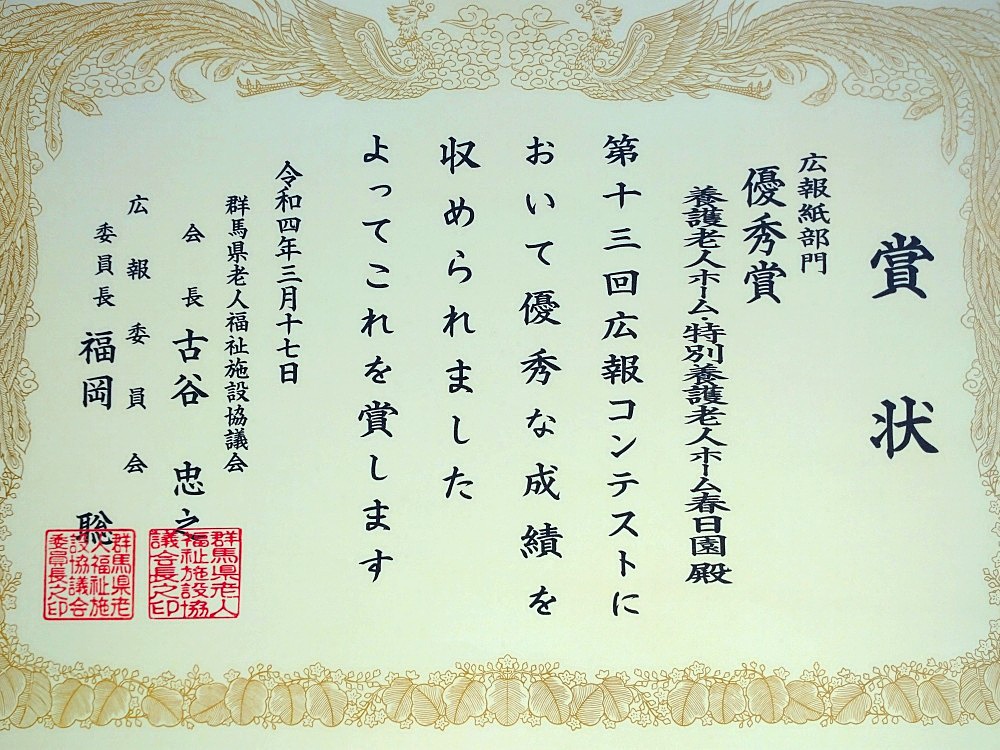 賞状
広報紙部門
優秀賞
養護老人ホーム・特別養護老人ホーム春日園殿
第十三回広報コンテストに
おいて優秀な成績を
収められました
よってこれを賞します
令和四年三月十七日
群馬県老人福祉施設協議会
会長 古谷 忠之
広報委員会
委員長 福岡 聡
群馬県老人
福祉施設協
議会長之印
群馬県老
人福祉施
設協議会
委員長之印